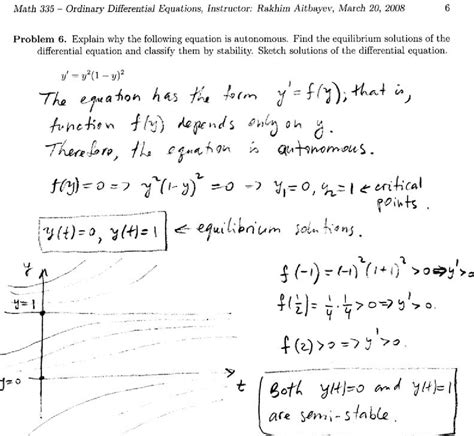 Math 335 – Ordinary Differential Equations, Instructor: Rakhim Aitbayev, March 20, 2008 6
Problem 6. Explain why the following equation is autonomous. Find the equilibrium solutions of the
differential equation and classify them by stability. Sketch solutions of the differential equation.
y' = y²(1 − y)²
The equation has the form y' = f(y); that is,
function f(y) depends only on y.
Therefore, the equation is autonomous.
f(y) = 0 => y²(1-y)² = 0 -> y₁=0, y₂=1 ← critical
points.
y(t)=0, y(t)=1 ← equilibrium solutions.
y
y=1
y=0
t
f(-1) = (-1)²(1+1)² > 0 => y'>0
f(½) = ¼·¼ > 0 => y'>0.
f(2) > 0 => y'>0.
Both y(t)=0 and y(t)=1
are semi-stable.